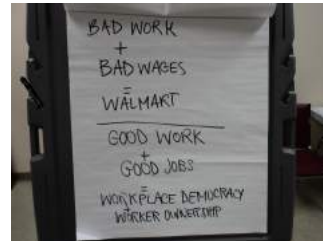 BAD WORK
+
BAD WAGES
=
WALMART
GOOD WORK
+
GOOD JOBS
=
WORKPLACE DEMOCRACY
+
WORKER OWNERSHIP